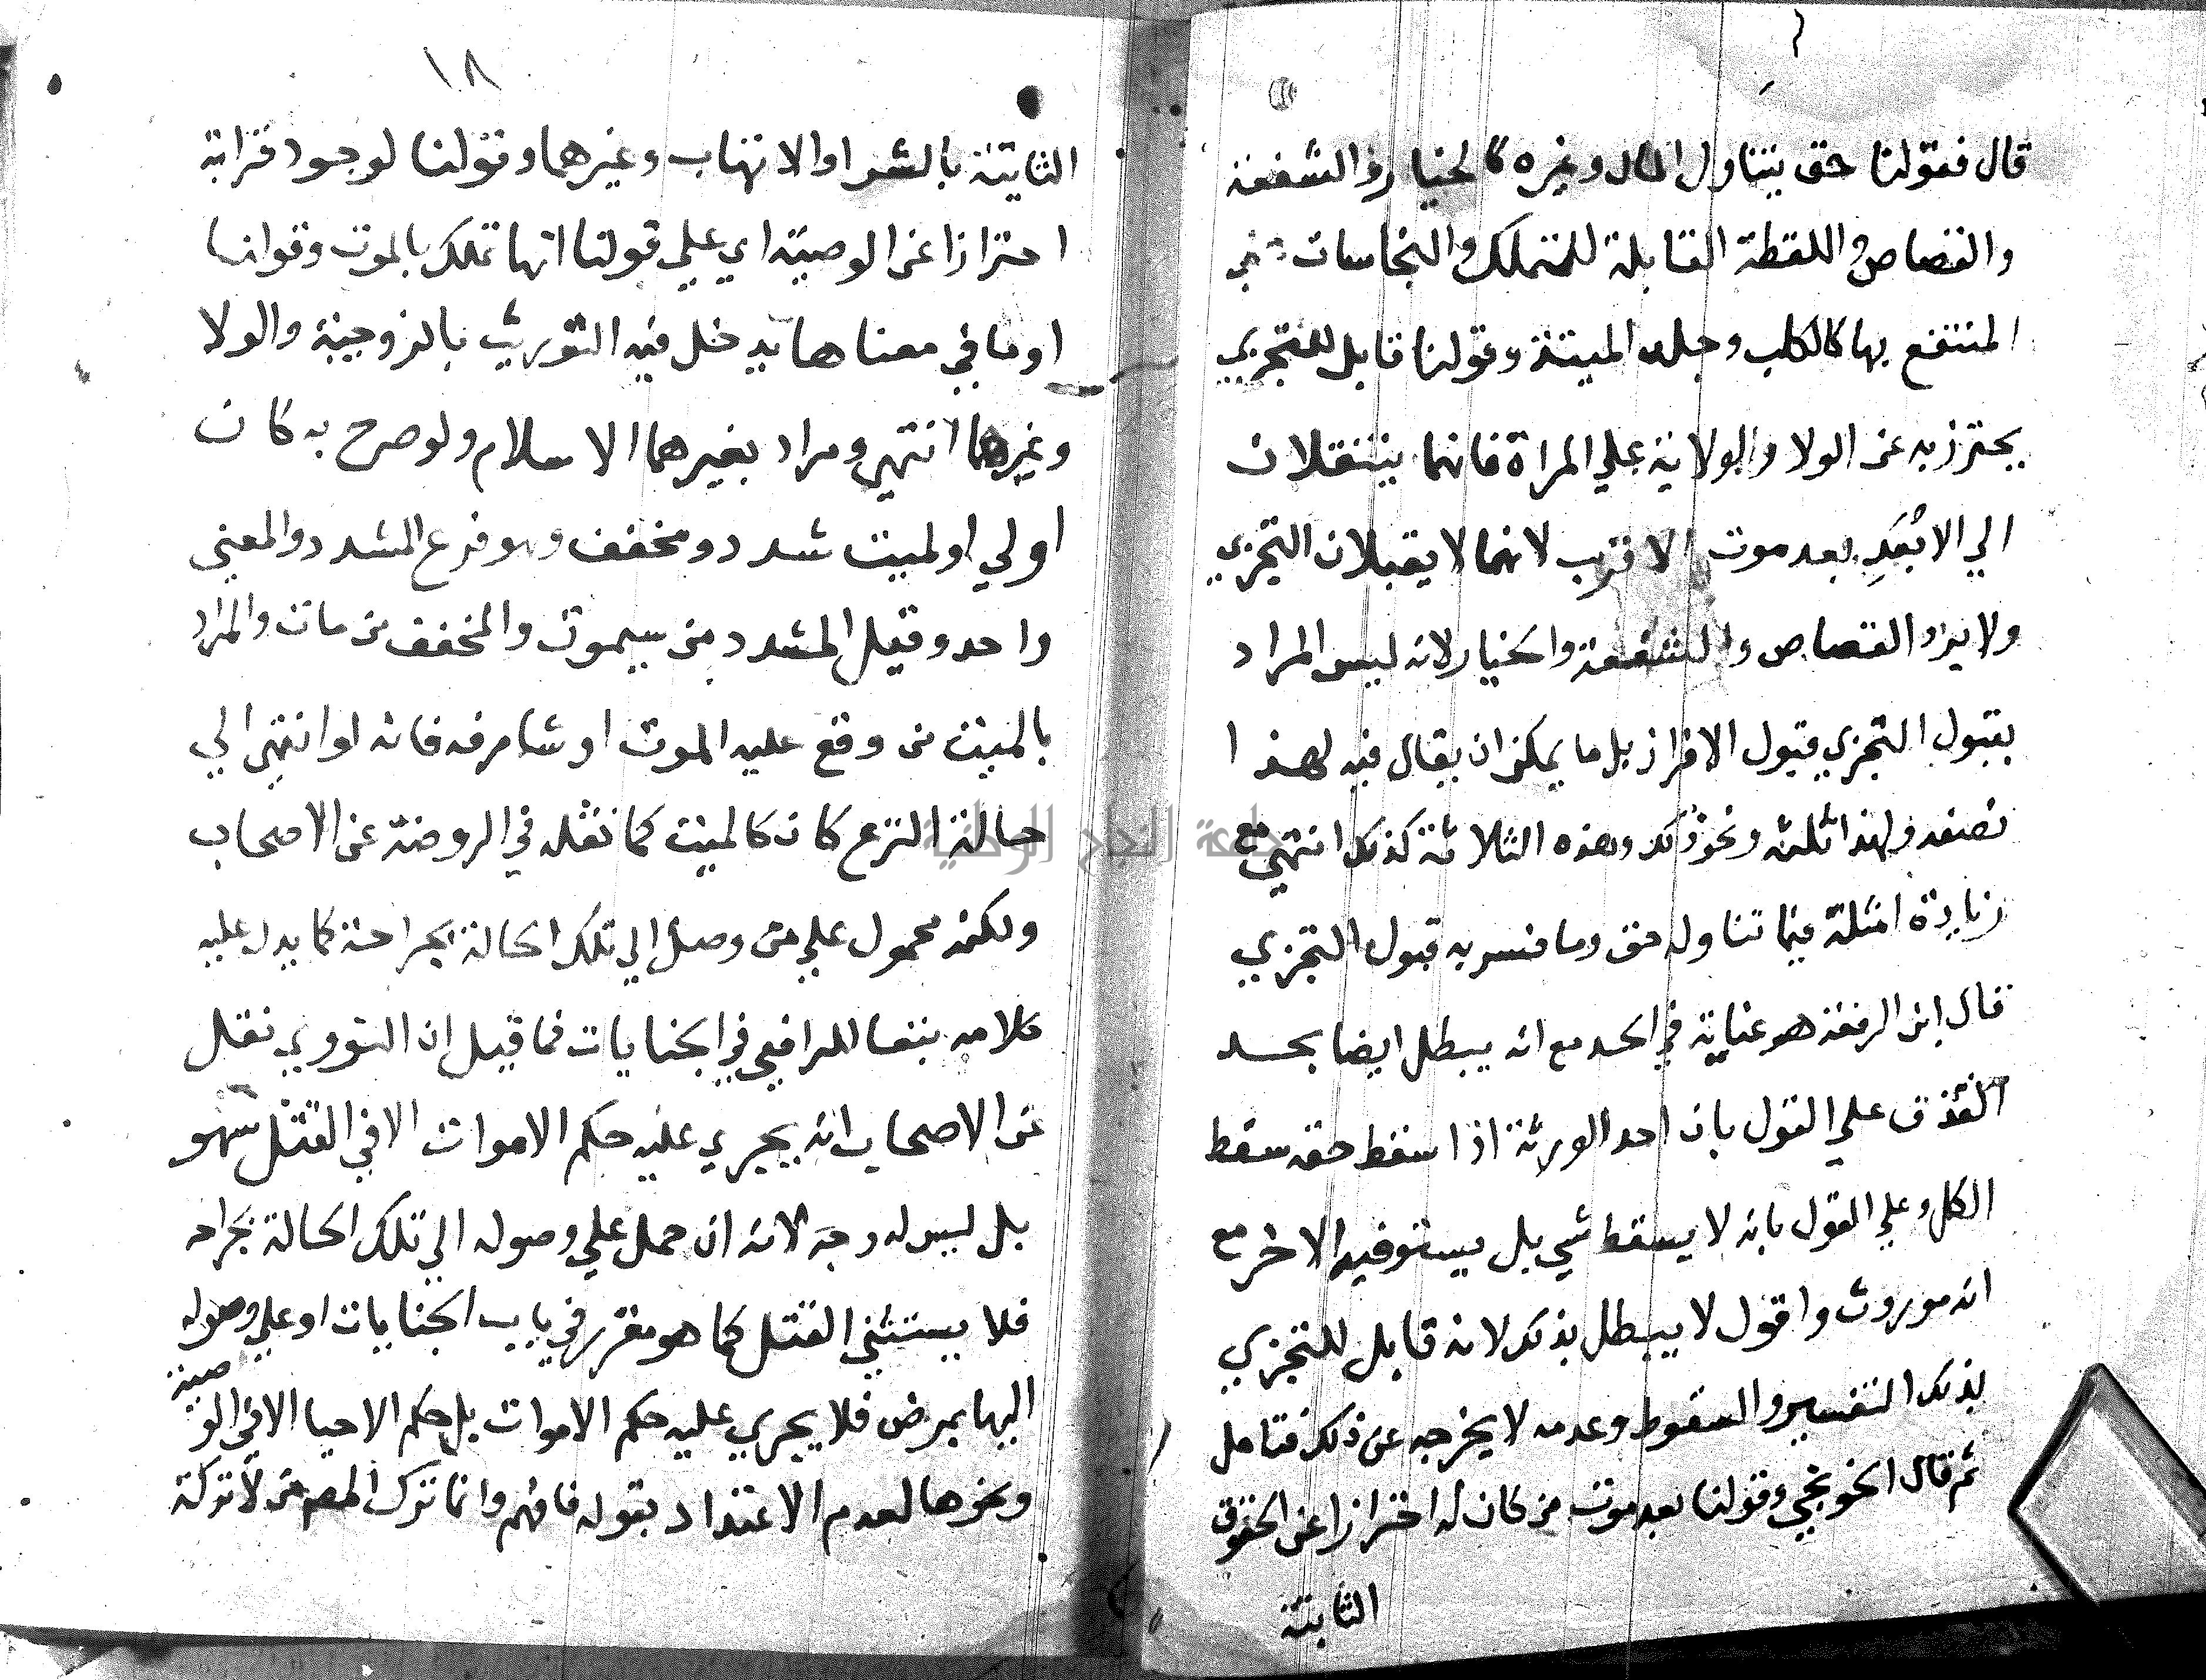 قال فقولنا حق يتناول المال وغيره كالخيار والشفعة
والقصاص واللقطة القابلة للتملك والنجاسات
المنتفع بها كالكلب وجلد الميتة وقولنا قابل للتجزي
يحترز به عن الولا والولاية علي المراة فانهما ينتقلان
الي الابعد بعد موت الاقرب لانهما لا يقبلان التجزي
ولا يرد القصاص والشفعة والخيار لانه ليس المراد
بقبول التجزي قبول الافراز بل ما يمكن ان يقال فيه لهذا
نصفه ولهذا ثلثه ونحو ذلك وهذه الثلاثة كذلك انتهي مع
زيادة امثلة فيما تناوله حق وما فسر به قبول التجزي
قال ابن الرفعة هو عناية في الحد مع انه يبطل ايضا بحد
القذف علي القول بان احد الورثة اذا سقط حقه سقط
الكل وعلي القول بانه لا يسقط شي بل يستوفيه الاخر مع
انه موروث واقول لا يبطل بذلك لانه قابل للتجزي
بذلك التفسير والسقوط وعدمه لا يخرجه عن ذلك فتامل
ثم قال الخونجي وقولنا بعد موت من كان له احترازا عن الحقوق
الثابتة
١٨
الثابتة بالشرا والاتهاب وغيرهما وقولنا لوجود قرابة
احترازا عن الوصية اي علي قولنا انها تملك بالموت وقولنا
او ما في معناها يدخل فيه التوريث بالزوجية والولا
وغيرهما انتهي ومراد بغيرهما الاسلام ولو صرح به كان
اولي اولميت شدد ومخفف وهو فرع المشدد والمعني
واحد وقيل المشدد من سيموت والمخفف من مات والمراد
بالميت من وقع عليه الموت او شارفه فانه لو انتهي الي
حالة النزع كان كالميت كما نقله في الروضة عن الاصحاب
ولكنه محمول علي من وصل الي تلك الحالة بجراحة كما يدل عليه
كلامه تبعا للرافعي في الجنايات فما قيل ان النووي نقل
عن الاصحاب انه يجري عليه حكم الاموات الا في القتل سهو
بل ليس له وجه لانه ان حمل علي وصوله الي تلك الحالة بجراحه
فلا يستثني القتل كما هو مقرر في باب الجنايات او علي وصوله
اليها بمرض فلا يجري عليه حكم الاموات بل حكم الاحيا الا في الوصية
ونحوها لعدم الاعتداد بقوله فافهم وانما ترك المص من لا تركة
جامعة النجاح الوطنية